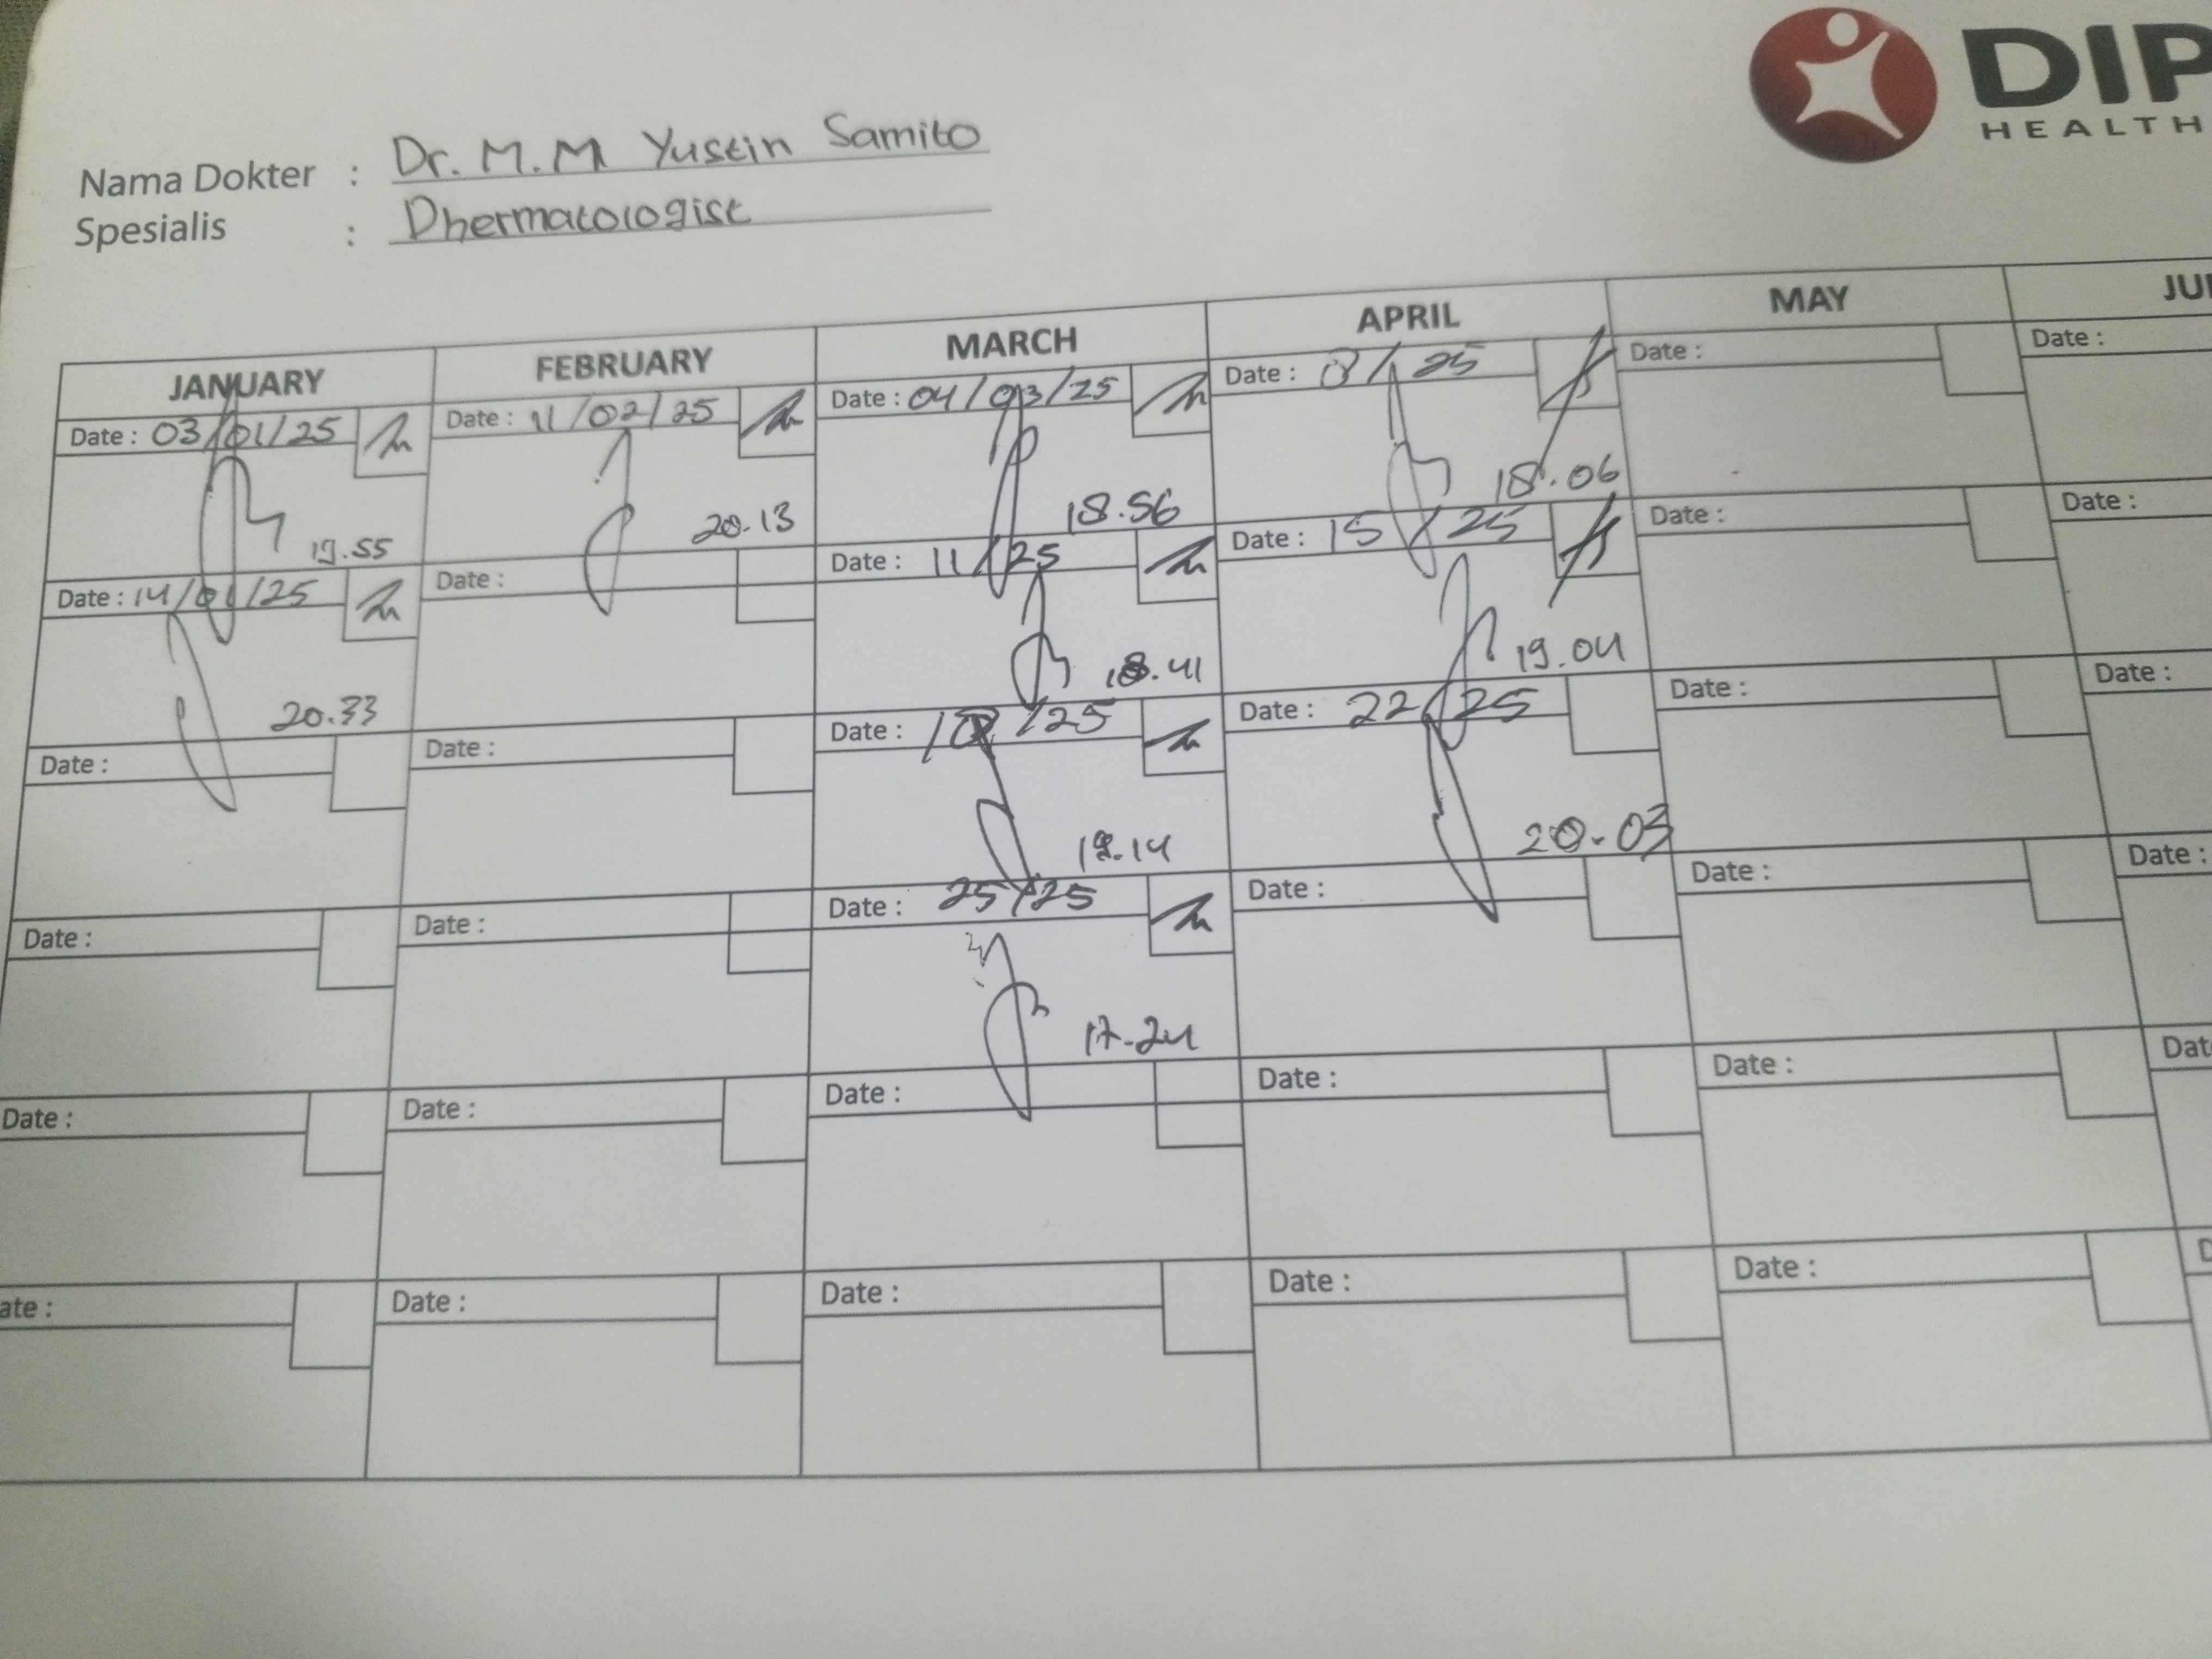 DIP
HEALTH
Nama Dokter : Dr. M.M Yustin Samito
Spesialis : Dhermatologist
JANUARY FEBRUARY MARCH APRIL MAY JU
Date : 03/01/25 Date : 11/02/25 Date : 04/03/25 Date : 8/25 Date : Date :
19.55 20.13 18.56 18.06
Date : 14/01/25 Date : Date : 11/25 Date : 15/25 Date : Date :
20.33 18.41 19.04
Date : Date : Date : /25 Date : 22/25 Date : Date :
14 20.03
Date : Date : Date : 25/25 Date : Date : Date :
17.24
Date : Date : Date : Date : Date : Dat
ate : Date : Date : Date : Date : D